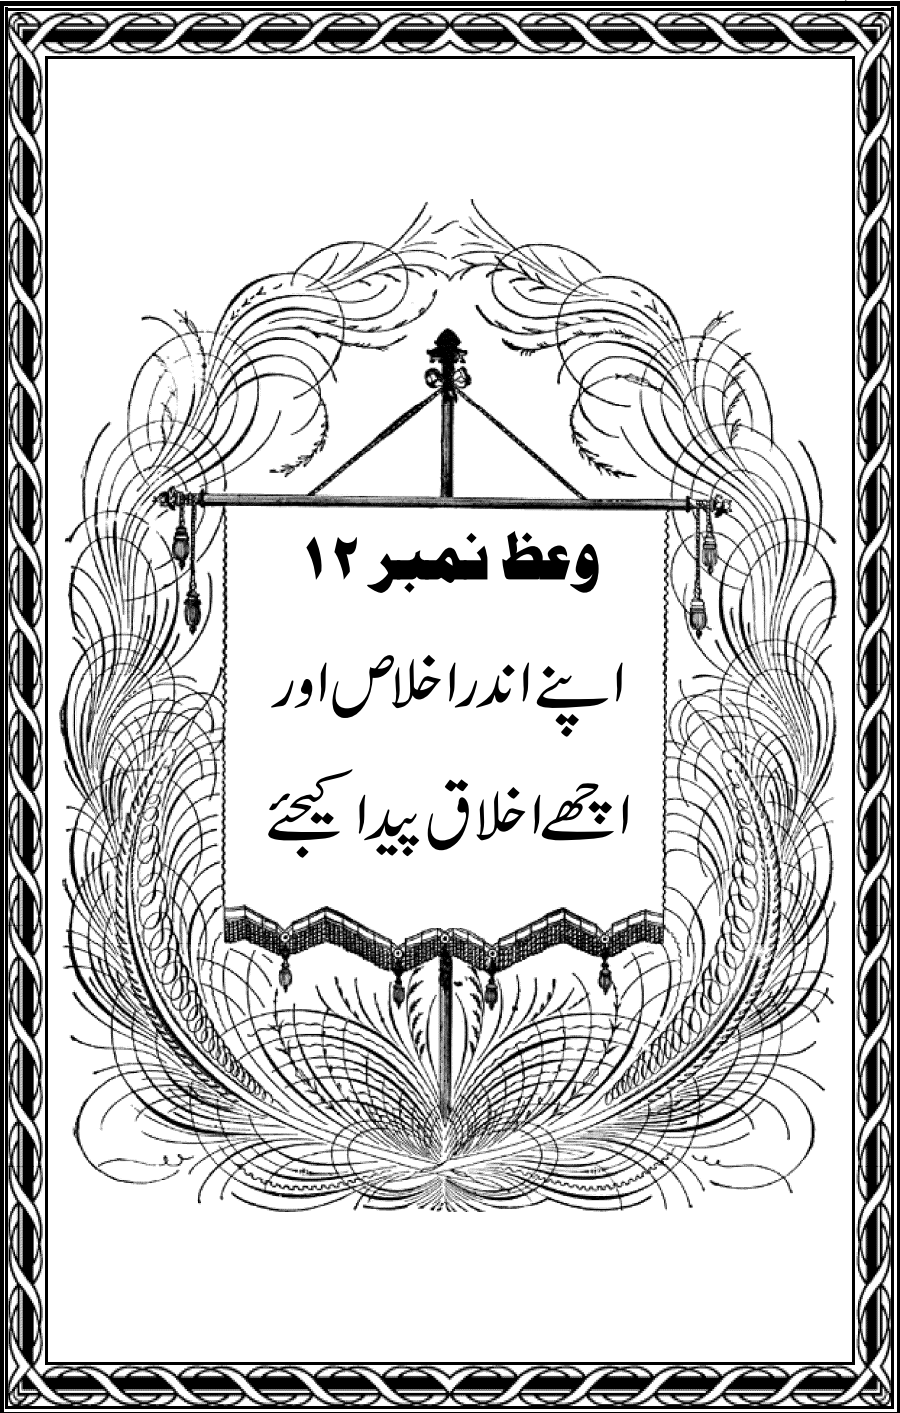 وعظ نمبر ۱۲
اپنے اندر اخلاص اور
اچھے اخلاق پیدا کیجئے